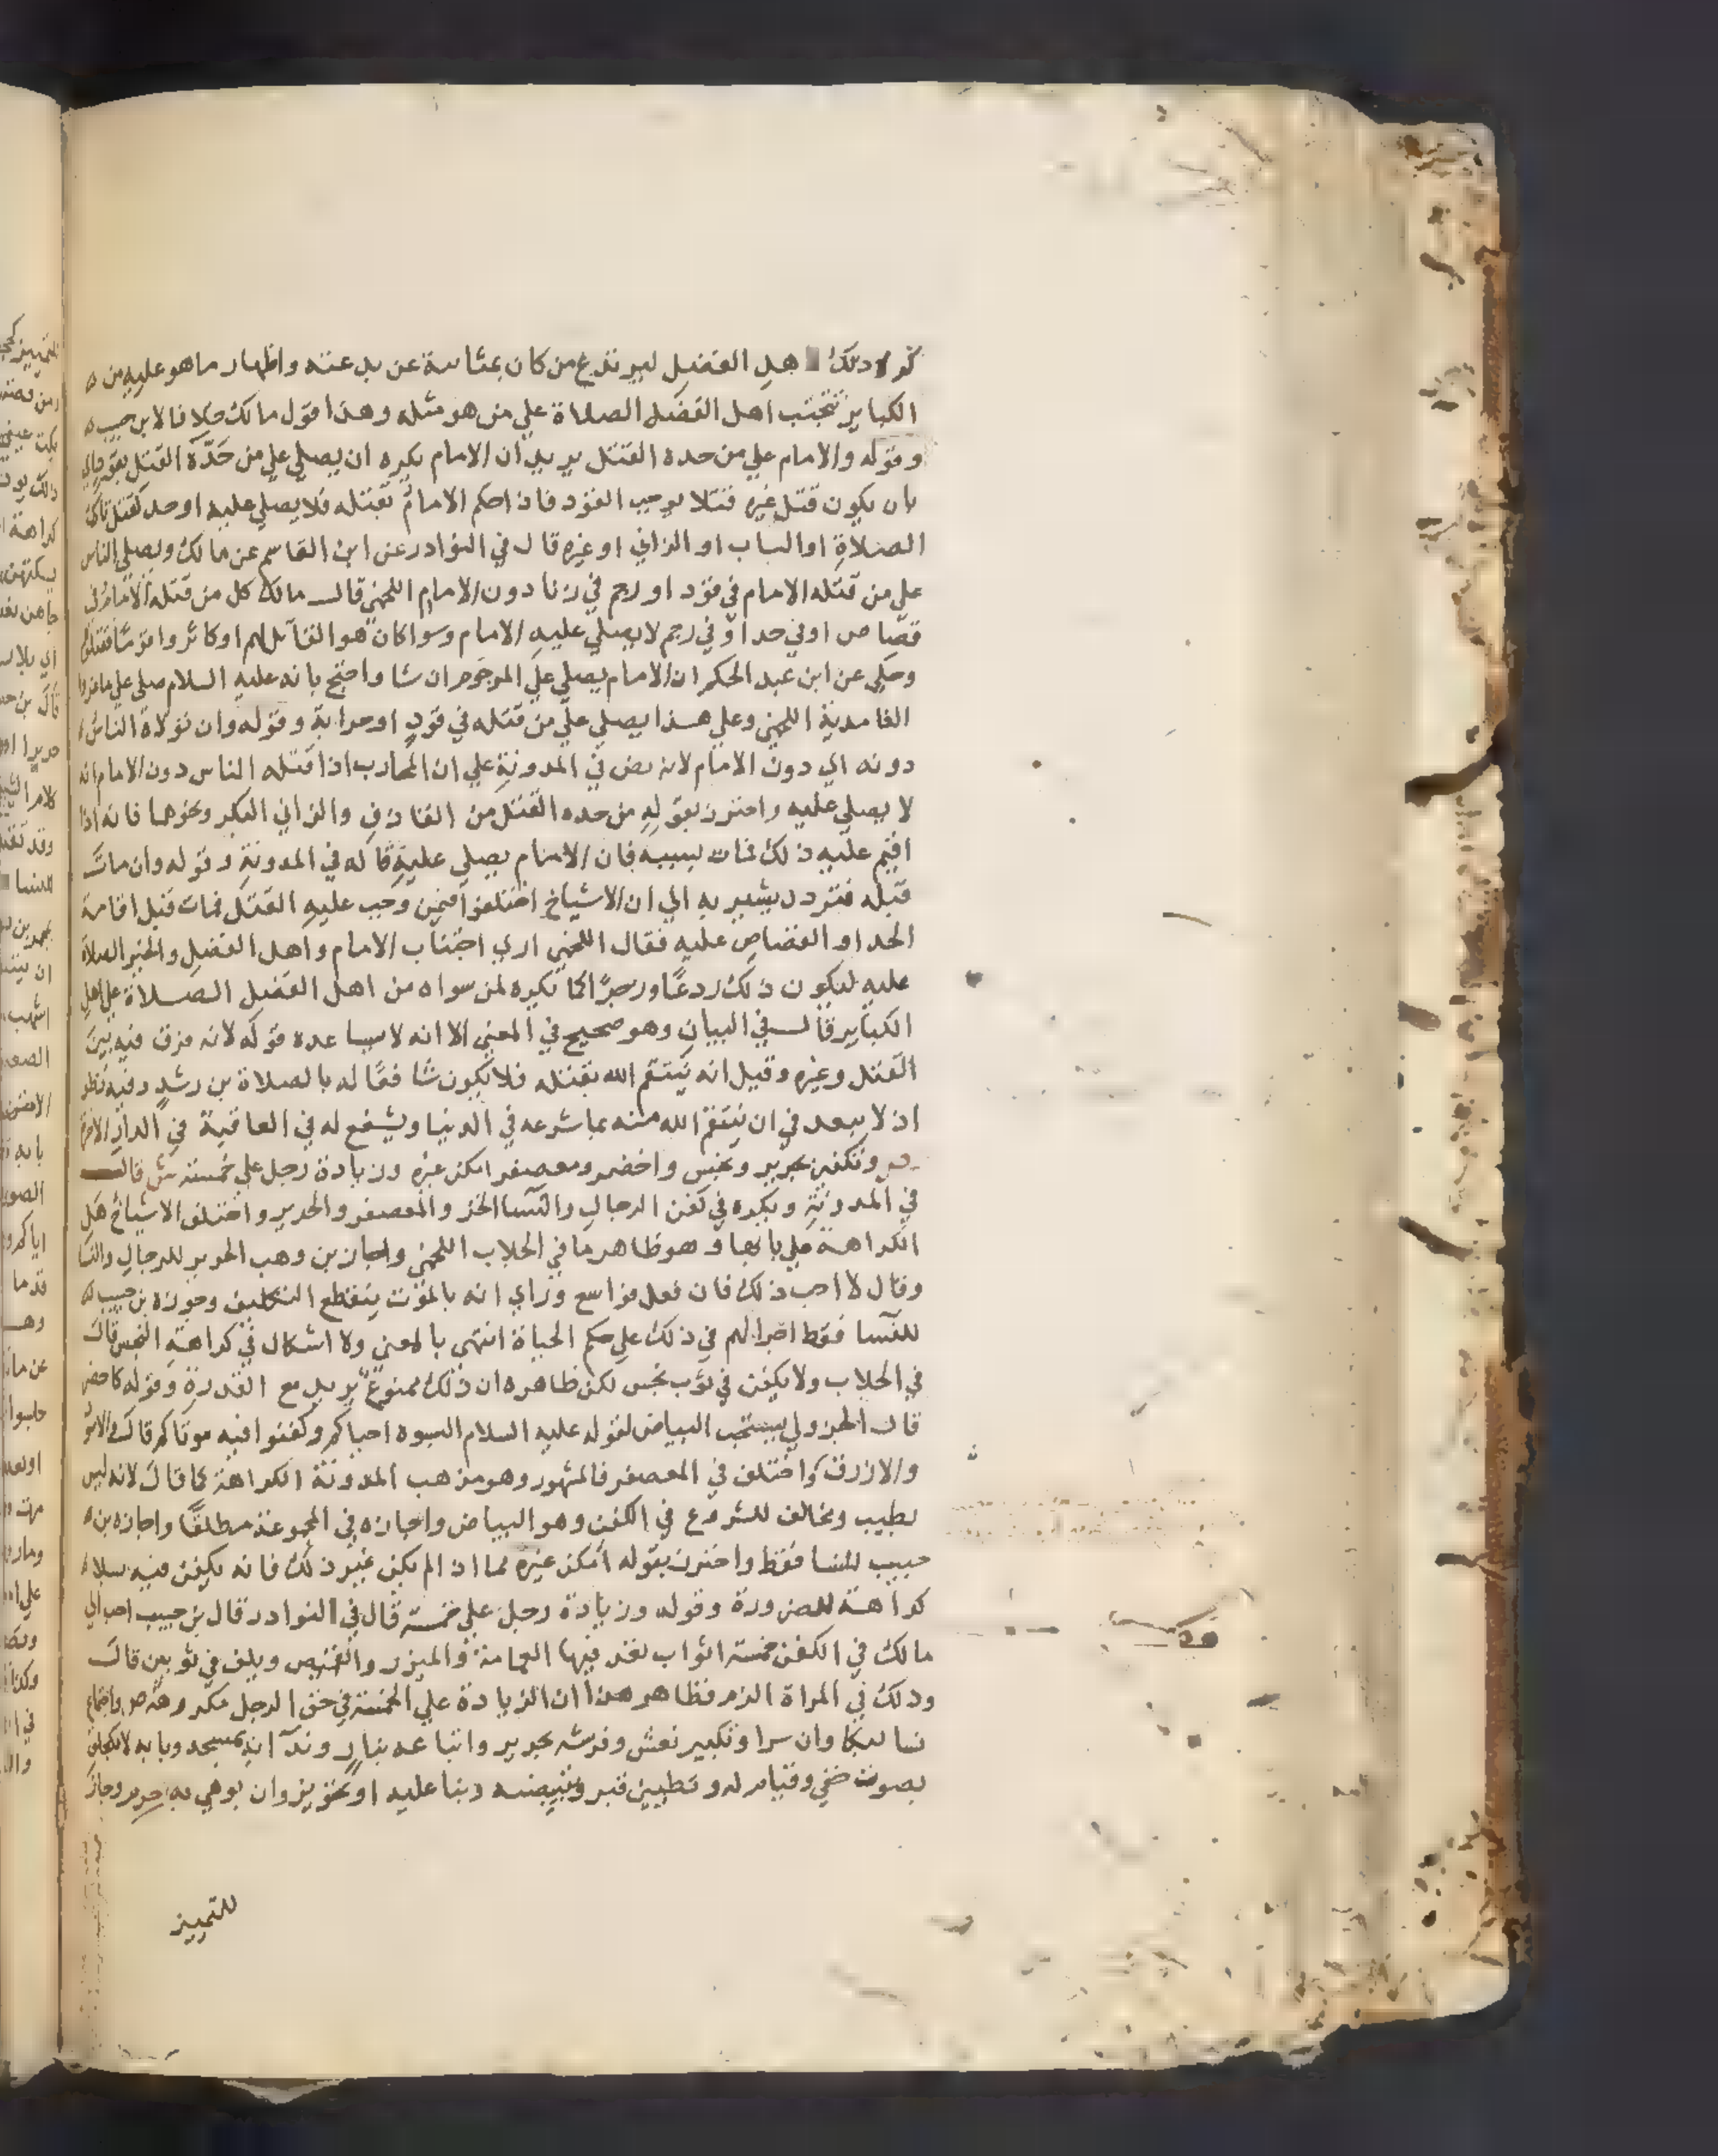 كره لاهل الفضل ليرتدع من كان بمثابته عن بدعته واظهار ما هو عليه من
الكباير تجتنب اهل الفضل الصلاة علي من هو مثله وهذا قول مالك خلافا لابن حبيب
وقوله والامام علي من حده القتل يريد ان الامام يكره ان يصلي علي من حده القتل بقود
بان يكون قتل غيره قتلا يوجب القود فاذا حكم الامام بقتله فلا يصلي عليه اوحد كقتل تارك
الصلاة او الساب او الزاني او غيره قال في النوادر عن ابن القاسم عن مالك ويصلي الناس
علي من قتله الامام في قود او رجم في زنا دون الامام اللخمي قال مالك كل من قتله الامام في
قصاص اوفي حد او في رجم لا يصلي عليه الامام وسوا كان هو القاتل لهم او كاثروا قوما فقتلوا
وحكي عن ابن عبد الحكم ان الامام يصلي علي المرجوم ان شا واحتج بانه عليه السلام صلي علي ماعز و
الغامدية اللخمي وعلي هذا يصلي علي من قتله في قود او حرابة وقوله وان تولاه الناس
دونه اي دون الامام لانه نص في المدونة علي ان المحارب اذا قتله الناس دون الامام انه
لا يصلي عليه واحترز بقوله من حده القتل من القاذف والزاني البكر ونحوهما فانه اذا
اقيم عليه ذلك فمات بسببه فان الامام يصلي عليه قاله في المدونة وقوله وان مات
قبله فتردد يشير به الي ان الاشياخ اختلفوا فيمن وجب عليه القتل فمات قبل اقامة
الحد او القصاص عليه فقال اللخمي اري اجتناب الامام واهل الفضل والخير الصلاة
عليه ليكون ذلك ردعا وزجرا كما نكره لمن سواه من اهل الفضل الصلاة علي اهل
الكباير قال في البيان وهو صحيح في المعني الا انه لا يساعده قوله لانه فرق فيه بين
القتل وغيره وقيل انه ينتقم الله بقتله فلا يكون شافعا له بالصلاة بن رشد وفيه نظر
اذ لا يبعد في ان ينتقم الله منه بما شرعه في الدنيا ويشفع له في العاقبة في الدار الاخرة
ص وتكفين بحرير ونجس واخضر ومعصفر امكن غيره وزيادة رجل علي خمسة ش قال
في المدونة ويكره في كفن الرجال والنسا الخز والمعصفر والحرير واختلف الاشياخ هل
الكراهة علي بابها وهو ظاهر ما في الجلاب اللخمي واجاز بن وهب الحرير للرجال والنسا
وقال لا احب ذلك فان فعل فواسع وراي انه بالموت ينقطع التكليف وجوزه بن حبيب
للنسا فقط اجرا لهم في ذلك علي حكم الحياة انتهي بالمعني ولا اشكال في كراهة النجس قال
في الجلاب ولا يكفن في ثوب نجس لكن ظاهره ان ذلك ممنوع يريد مع القدرة وقوله كاخضر
قال الجزولي يستحب البياض لقوله عليه السلام البسوه احياكم وكفنوا فيه موتاكم قال
والازرق واختلف في المعصفر فالمشهور وهو مذهب المدونة الكراهة كما قال لانه ليس
بطيب ومخالف للشروع في الكفن وهو البياض واجازه في المجموعة مطلقا واجازه بن
حبيب للنسا فقط واحترز بقوله امكن غيره مما اذا لم يكن غير ذلك فانه يكفن فيه بلا
كراهة للضرورة وقوله وزيادة رجل علي خمسة قال في النوادر قال بن حبيب احب الي
مالك في الكفن خمسة اثواب تعد فيها العمامة والميزر والقميص ويلف في ثوبين قال
وذلك في المراة الزم فظاهر هذا ان الزيادة علي الخمسة في حق الرجل مكروهة ص واجتماع
نسا لبكا وان سرا وتكبير نعش وفرشه بحرير واتباعه بنار وندا به بمسجد وبابه لا بكحلق
بصوت خفي وقيام له وتطيين قبر وتبييضه وبنا عليه او تحويز وان بوهي به حرم وجاز
للتمييز